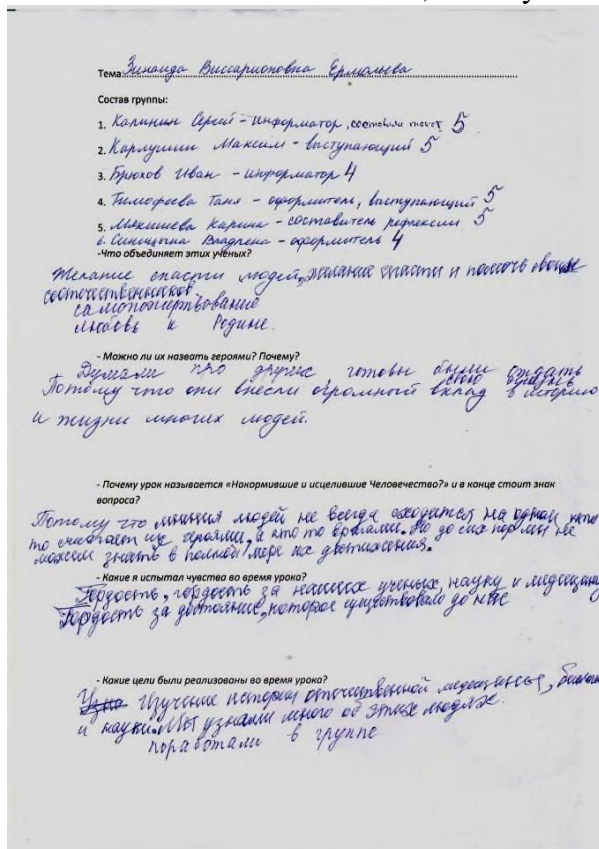 Тема: Зинаида Виссарионовна Ермольева
Состав группы:
1. Калинин Сергей - информатор, составили текст 5
2. Карлушин Максим - выступающий 5
3. Брюхов Иван - информатор 4
4. Тимофеева Таня - оформитель, выступающий 5
5. Мякишева Карина - составитель рефлексии 5
6. Синицына Владлена - оформитель 4
-Что объединяет этих учёных?
Желание спасти людей, желание спасти и помочь своим
соотечественников.
самопожертвование
любовь к Родине.
- Можно ли их назвать героями? Почему?
Думали про других готовы были отдать
свою жизнь
Потому что они внесли огромный вклад в историю
и жизни многих людей.
- Почему урок называется «Накормившие и исцелившие Человечество?» и в конце стоит знак
вопроса?
Потому что мнения людей не всегда сходятся на одном кто
то считает их героями, а кто то врагами. Но до сих пор мы не
можем знать в полной мере их достижения.
- Какие я испытал чувства во время урока?
Гордость, гордость за наших ученых, науку и медицину
Гордость за достояние, которое существовало до нас
- Какие цели были реализованы во время урока?
Изучение истории отечественной медицины,
и науки. Мы узнали много об этих людях.
поработали в группе